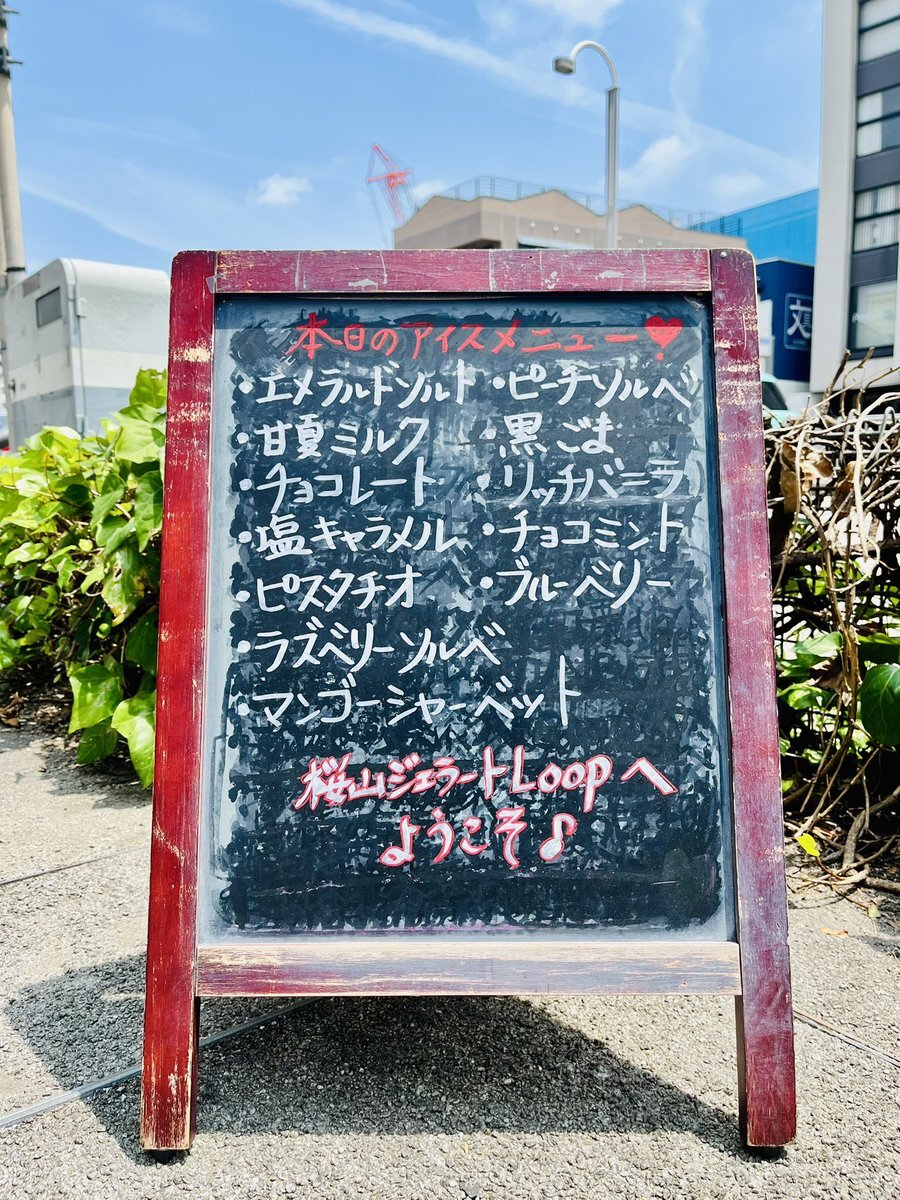 本日のアイスメニュー♥
・エメラルドソルト ・ピーチソルベ
・甘夏ミルク ・黒ごま
・チョコレート ・リッチバニラ
・塩キャラメル ・チョコミント
・ピスタチオ ・ブルーベリー
・ラズベリーソルベ
・マンゴーシャーベット
桜山ジェラートLoopへ
ようこそ♪
文